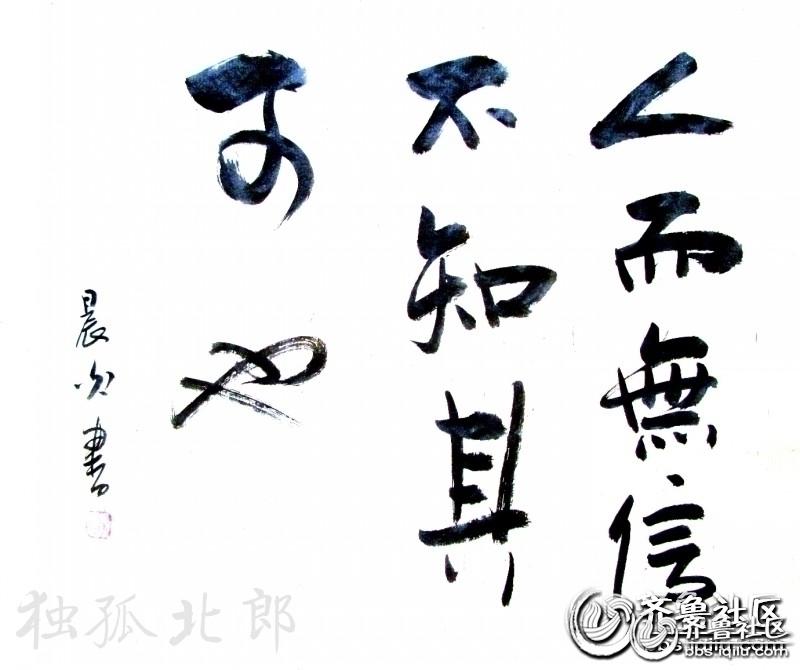 人而無信
不知其
可也
晨光書
独孤北郎
齐鲁社区
齐鲁社区
bbs.iqilu.com